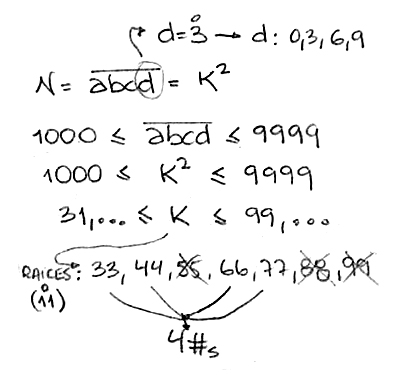 d = 3̊ → d: 0,3,6,9
N = \overline{abcd} = K²
1000 ≤ \overline{abcd} ≤ 9999
1000 ≤ K² ≤ 9999
31,... ≤ K ≤ 99,...
RAICES: 33, 44, 55, 66, 77, 88, 99
(11̊)
4#s